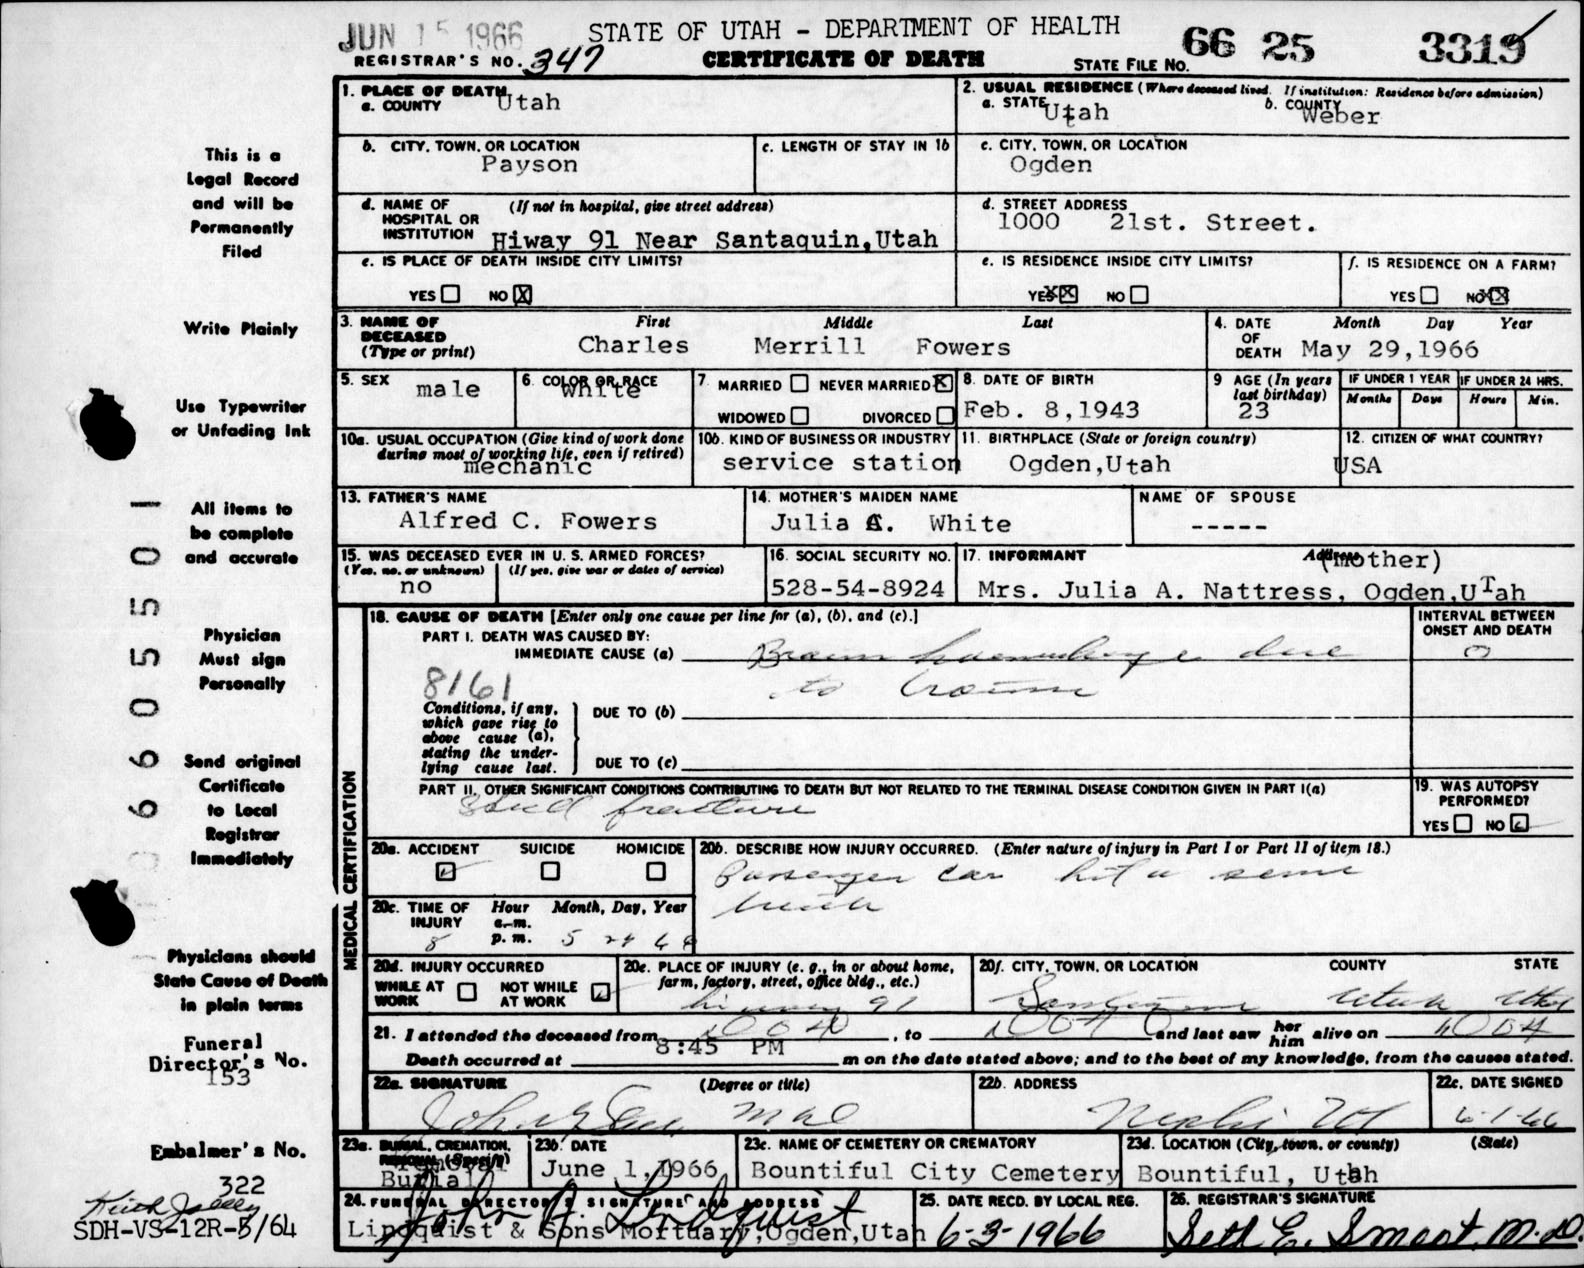 JUN 15 1966
STATE OF UTAH - DEPARTMENT OF HEALTH
REGISTRAR'S NO. 347
CERTIFICATE OF DEATH
STATE FILE NO. 66 25 3319
1. PLACE OF DEATH
a. COUNTY Utah
2. USUAL RESIDENCE (Where deceased lived. If institution: Residence before admission)
a. STATE Utah b. COUNTY Weber
b. CITY, TOWN, OR LOCATION
Payson
c. LENGTH OF STAY IN 1b
c. CITY, TOWN, OR LOCATION
Ogden
d. NAME OF HOSPITAL OR INSTITUTION (If not in hospital, give street address)
Hiway 91 Near Santaquin,Utah
d. STREET ADDRESS
1000 21st. Street.
e. IS PLACE OF DEATH INSIDE CITY LIMITS?
YES NO X
e. IS RESIDENCE INSIDE CITY LIMITS?
YES X NO
f. IS RESIDENCE ON A FARM?
YES NO X
3. NAME OF DECEASED (Type or print)
First Middle Last
Charles Merrill Fowers
4. DATE OF DEATH
Month Day Year
May 29,1966
5. SEX male
6. COLOR OR RACE
White
7 MARRIED NEVER MARRIED X
WIDOWED DIVORCED
8. DATE OF BIRTH
Feb. 8,1943
9 AGE (In years last birthday)
23
IF UNDER 1 YEAR
Months Days
IF UNDER 24 HRS.
Hours Min.
10a. USUAL OCCUPATION (Give kind of work done
during most of working life, even if retired)
mechanic
10b. KIND OF BUSINESS OR INDUSTRY
service station
11. BIRTHPLACE (State or foreign country)
Ogden,Utah
12. CITIZEN OF WHAT COUNTRY?
USA
13. FATHER'S NAME
Alfred C. Fowers
14. MOTHER'S MAIDEN NAME
Julia A. White
NAME OF SPOUSE
-----
15. WAS DECEASED EVER IN U. S. ARMED FORCES?
(Yes, no, or unknown) (If yes, give war or dates of service)
no
16. SOCIAL SECURITY NO.
528-54-8924
17. INFORMANT Address
(mother)
Mrs. Julia A. Nattress, Ogden,UTah
18. CAUSE OF DEATH [Enter only one cause per line for (a), (b), and (c).]
INTERVAL BETWEEN ONSET AND DEATH
PART I. DEATH WAS CAUSED BY:
IMMEDIATE CAUSE (a) Brain haemorrhage due
to trauma
0
8161
Conditions, if any,
which gave rise to
above cause (a),
stating the under-
lying cause last.
DUE TO (b)
DUE TO (c)
PART II. OTHER SIGNIFICANT CONDITIONS CONTRIBUTING TO DEATH BUT NOT RELATED TO THE TERMINAL DISEASE CONDITION GIVEN IN PART I(a)
Skull fracture
19. WAS AUTOPSY PERFORMED?
YES NO
20a. ACCIDENT SUICIDE HOMICIDE
20b. DESCRIBE HOW INJURY OCCURRED. (Enter nature of injury in Part I or Part II of item 18.)
Passenger car hit a semi
truck
20c. TIME OF INJURY
Hour Month, Day, Year
a.m.
p.m.
8 5 29 66
20d. INJURY OCCURRED
WHILE AT WORK NOT WHILE AT WORK
20e. PLACE OF INJURY (e. g., in or about home,
farm, factory, street, office bldg., etc.)
hiway 91
20f. CITY, TOWN, OR LOCATION COUNTY STATE
Santaquin Utah Utah
21. I attended the deceased from DOA, to DOA and last saw her him alive on DOA
Death occurred at 8:45 PM m on the date stated above; and to the best of my knowledge, from the causes stated.
22a. SIGNATURE (Degree or title)
22b. ADDRESS
Nephi Ut
22c. DATE SIGNED
6-1-66
23a. BURIAL, CREMATION, REMOVAL (Specify)
removal
Burial
23b. DATE
June 1,1966
23c. NAME OF CEMETERY OR CREMATORY
Bountiful City Cemetery
23d. LOCATION (City, town, or county) (State)
Bountiful, Utah
24. FUNERAL DIRECTOR'S SIGNATURE AND ADDRESS
John A. Lindquist
Lindquist & Sons Mortuary,Ogden,Utah
25. DATE RECD. BY LOCAL REG.
6-3-1966
26. REGISTRAR'S SIGNATURE
Seth E. Smoot, M.D.
MEDICAL CERTIFICATION
This is a
Legal Record
and will be
Permanently
Filed
Write Plainly
Use Typewriter
or Unfading Ink
All items to
be complete
and accurate
Physician
Must sign
Personally
Send original
Certificate
to Local
Registrar
Immediately
Physicians should
State Cause of Death
in plain terms
Funeral
Director's No.
153
Embalmer's No.
322
SDH-VS-12R-5/64
660550501